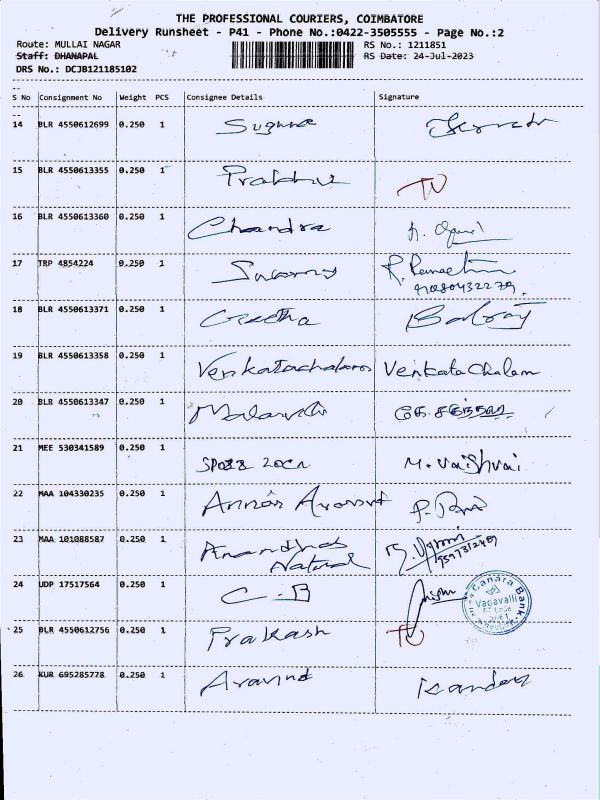 THE PROFESSIONAL COURIERS, COIMBATORE
Delivery Runsheet - P41 - Phone No.:0422-3505555 - Page No.:2
Route: MULLAI NAGAR RS No.: 1211851
Staff: DHANAPAL RS Date: 24-Jul-2023
DRS No.: DCJB121185102
S No Consignment No Weight PCS Consignee Details Signature
14 BLR 4550612699 0.250 1
15 BLR 4550613355 0.250 1 Prabhu
16 BLR 4550613360 0.250 1 Chandra
17 TRP 4854224 0.250 1 Swamy
18 BLR 4550613371 0.250 1 Geetha
19 BLR 4550613358 0.250 1 Venkatachalam Venkata Chalam
20 BLR 4550613347 0.250 1
21 MEE 530341589 0.250 1 M. Vaishvai
22 MAA 104330235 0.250 1
23 MAA 101088587 0.250 1 Anandhas
Natural
24 UDP 17517564 0.250 1 C-B
Canara Bank
25 BLR 4550612756 0.250 1 Prakash
26 KUR 695285778 0.250 1 Aravind